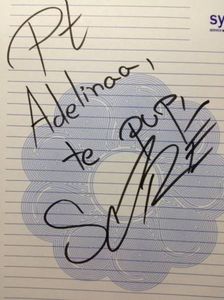 Pt
Adelinaa,
te pup,
sy